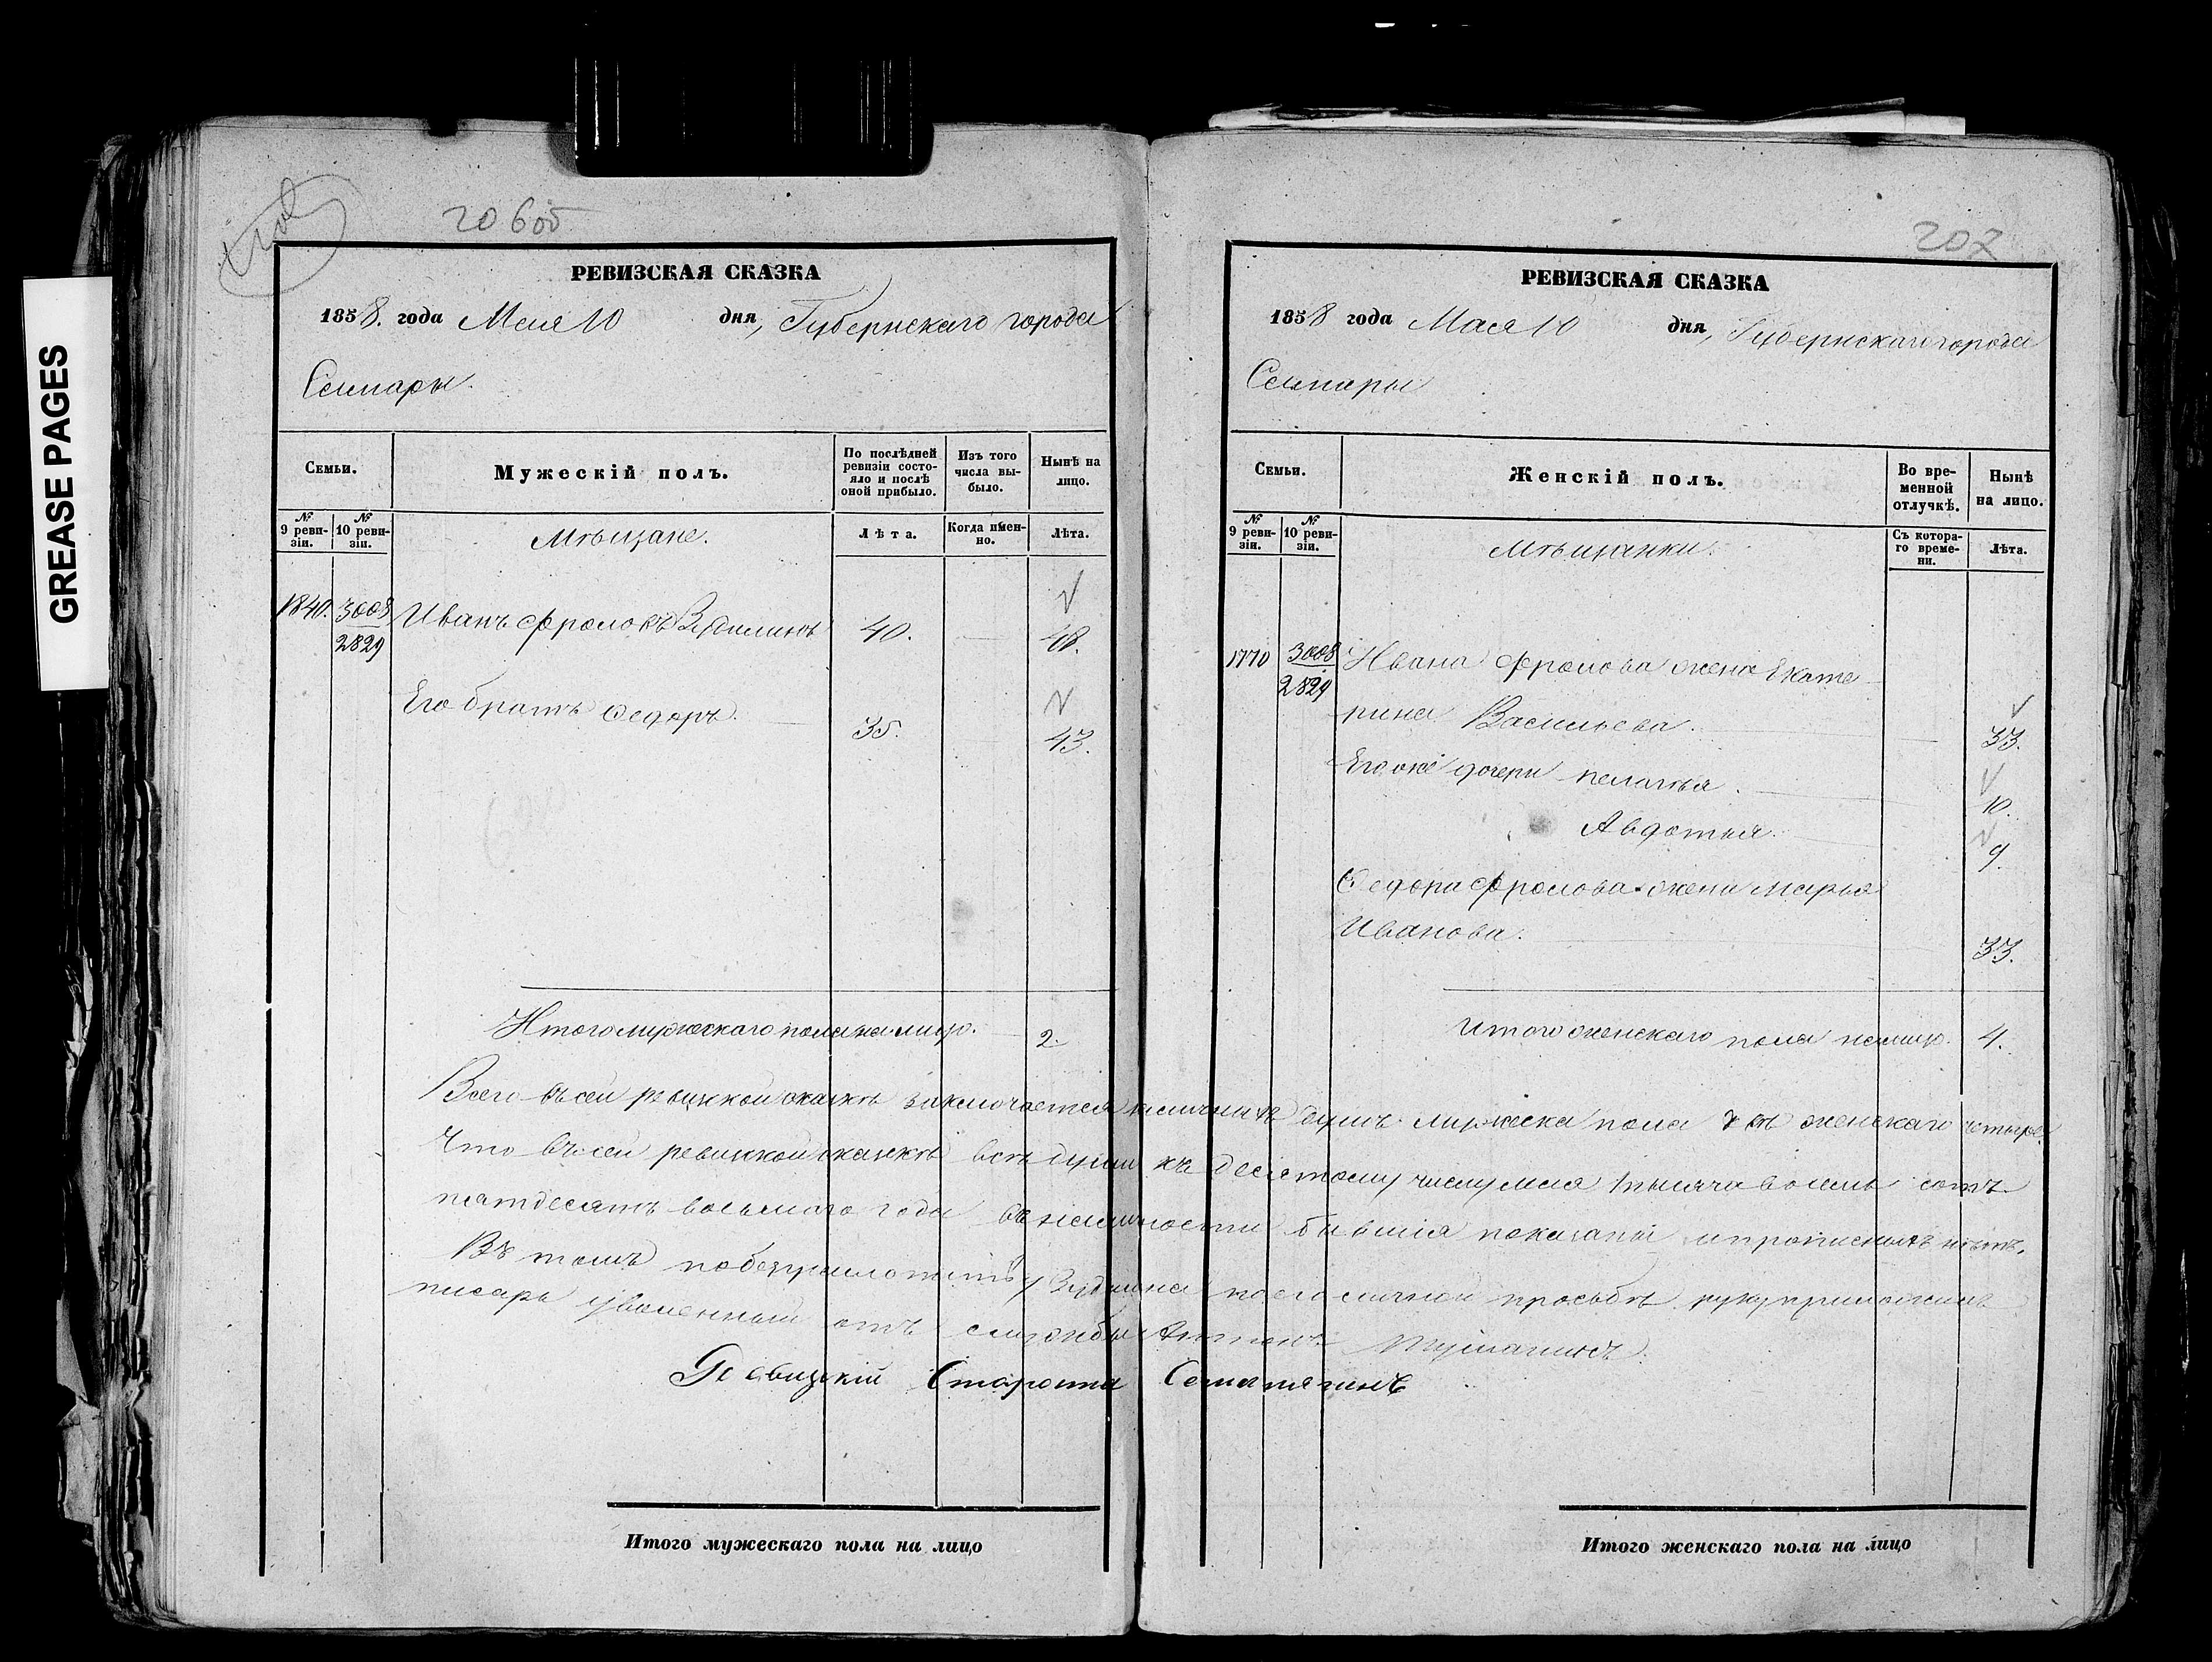 GREASE PAGES
206об
РЕВИЗСКАЯ СКАЗКА
1858. года Мая 10 дня, Губернскаго города
Самары.
Семьи.
Мужескій полъ.
По послѣдней ревизіи состояло и послѣ оной прибыло.
Изъ того числа выбыло.
Нынѣ на лицо.
№ 9 ревизіи.
№ 10 ревизіи.
Мѣщане.
Лѣта.
Когда именно.
Лѣта.
1840. 3008/2829 Иванъ Фроловъ 40. 48.
Его братъ Федоръ. 35. 43.
Итого мужескаго пола на лицо. 2.
207
РЕВИЗСКАЯ СКАЗКА
1858 года Мая 10 дня, Губернскаго города
Самары
Семьи.
Женскій полъ.
Во временной отлучкѣ.
Нынѣ на лицо.
№ 9 ревизіи.
№ 10 ревизіи.
Мѣщанки.
Съ котораго времени.
Лѣта.
1770 3008/2829 Ивана Фролова жена Екате
рина Васильева. 33.
Его же дочери Пелагья. 10.
Авдотья. 9.
Федора Фролова жена Марья
Иванова. 33.
Итого женскаго пола на лицо. 4.
Всего въ сей ревизкой сказкѣ заключается налично душъ мужеска пола женскаго четыре.
Что въ сей ревизкой сказкѣ всѣ души къ десятому числу мая тысяча восемь сотъ
пятдесятъ восьмаго года въ наличности бывшія показаны и прописныхъ нѣтъ.
Въ томъ по его личной просьбѣ руку приложилъ
писарь уволенный отъ службы
Ревизкій Староста
Итого мужескаго пола на лицо
Итого женскаго пола на лицо